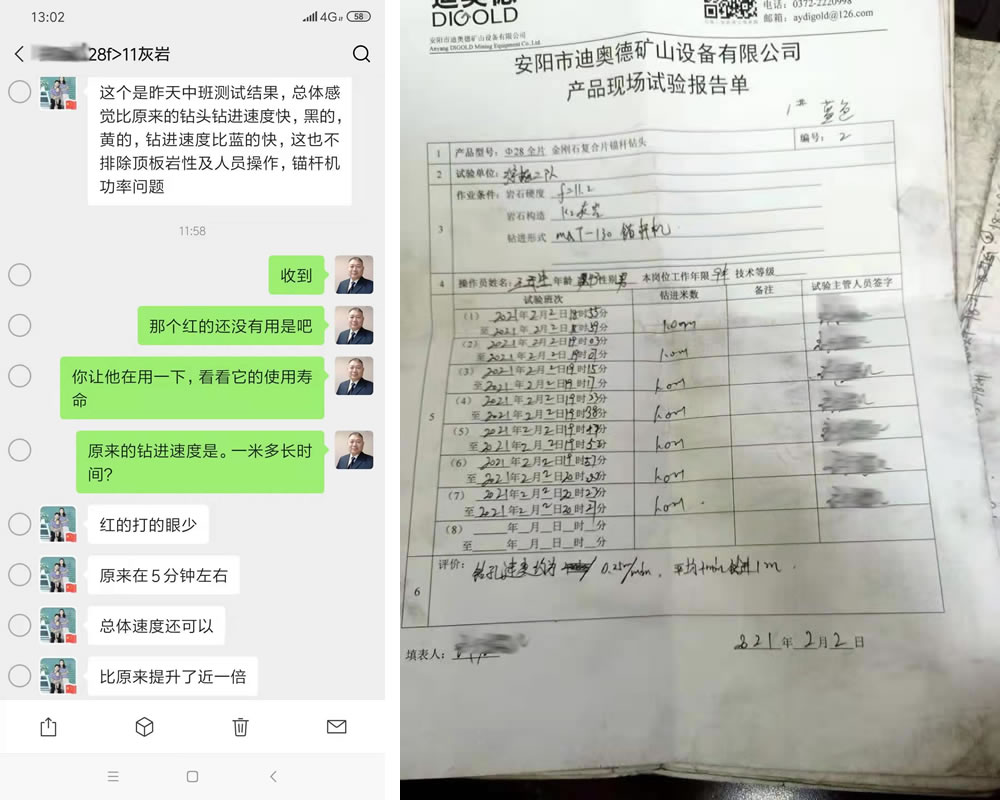 13:02
4G
58
28f>11灰岩
这个是昨天中班测试结果，总体感
觉比原来的钻头钻进速度快，黑的，
黄的，钻进速度比蓝的快，这也不
排除顶板岩性及人员操作，锚杆机
功率问题
11:58
收到
那个红的还没有用是吧
你让他在用一下，看看它的使用寿
命
原来的钻进速度是。一米多长时
间?
红的打的眼少
原来在5分钟左右
总体速度还可以
比原来提升了近一倍
DIGOLD
安阳市迪奥德矿山设备有限公司
Anyang DIGOLD Mining Equipment Co., Ltd.
电话: 0372-2220998
邮箱: aydigold@126.com
安阳市迪奥德矿山设备有限公司
产品现场试验报告单
1# 蓝色
1 产品型号: Φ28全片 金刚石复合片锚杆钻头 编号: 2
2 试验单位: 二队
3 作业条件: 岩石硬度 f=11.2
岩石构造 K2灰岩
钻进形式 MQT-130 锚杆机
4 操作员姓名: 年龄 性别 男 本岗位工作年限 9年 技术等级
试验班次 钻进米数 备注 试验主管人员签字
5
(1) 2021年2月2日18时55分
至2021年2月2日18时59分 1.0m
(2) 2021年2月2日19时03分
至2021年2月2日19时07分 1.0m
(3) 2021年2月2日19时15分
至2021年2月2日19时17分 1.0m
(4) 2021年2月2日19时33分
至2021年2月2日19时38分 1.0m
(5) 2021年2月2日19时49分
至2021年2月2日19时52分 1.0m
(6) 2021年2月2日19时57分
至2021年2月2日20时分 1.0m
(7) 2021年2月2日20时23分
至2021年2月2日20时27分 1.0m
(8) 年 月 日 时 分
至 年 月 日 时 分
6 评价: 钻孔速度约为 0.25m/min，平均4min钻进1m.
填表人:
2021年2月2日